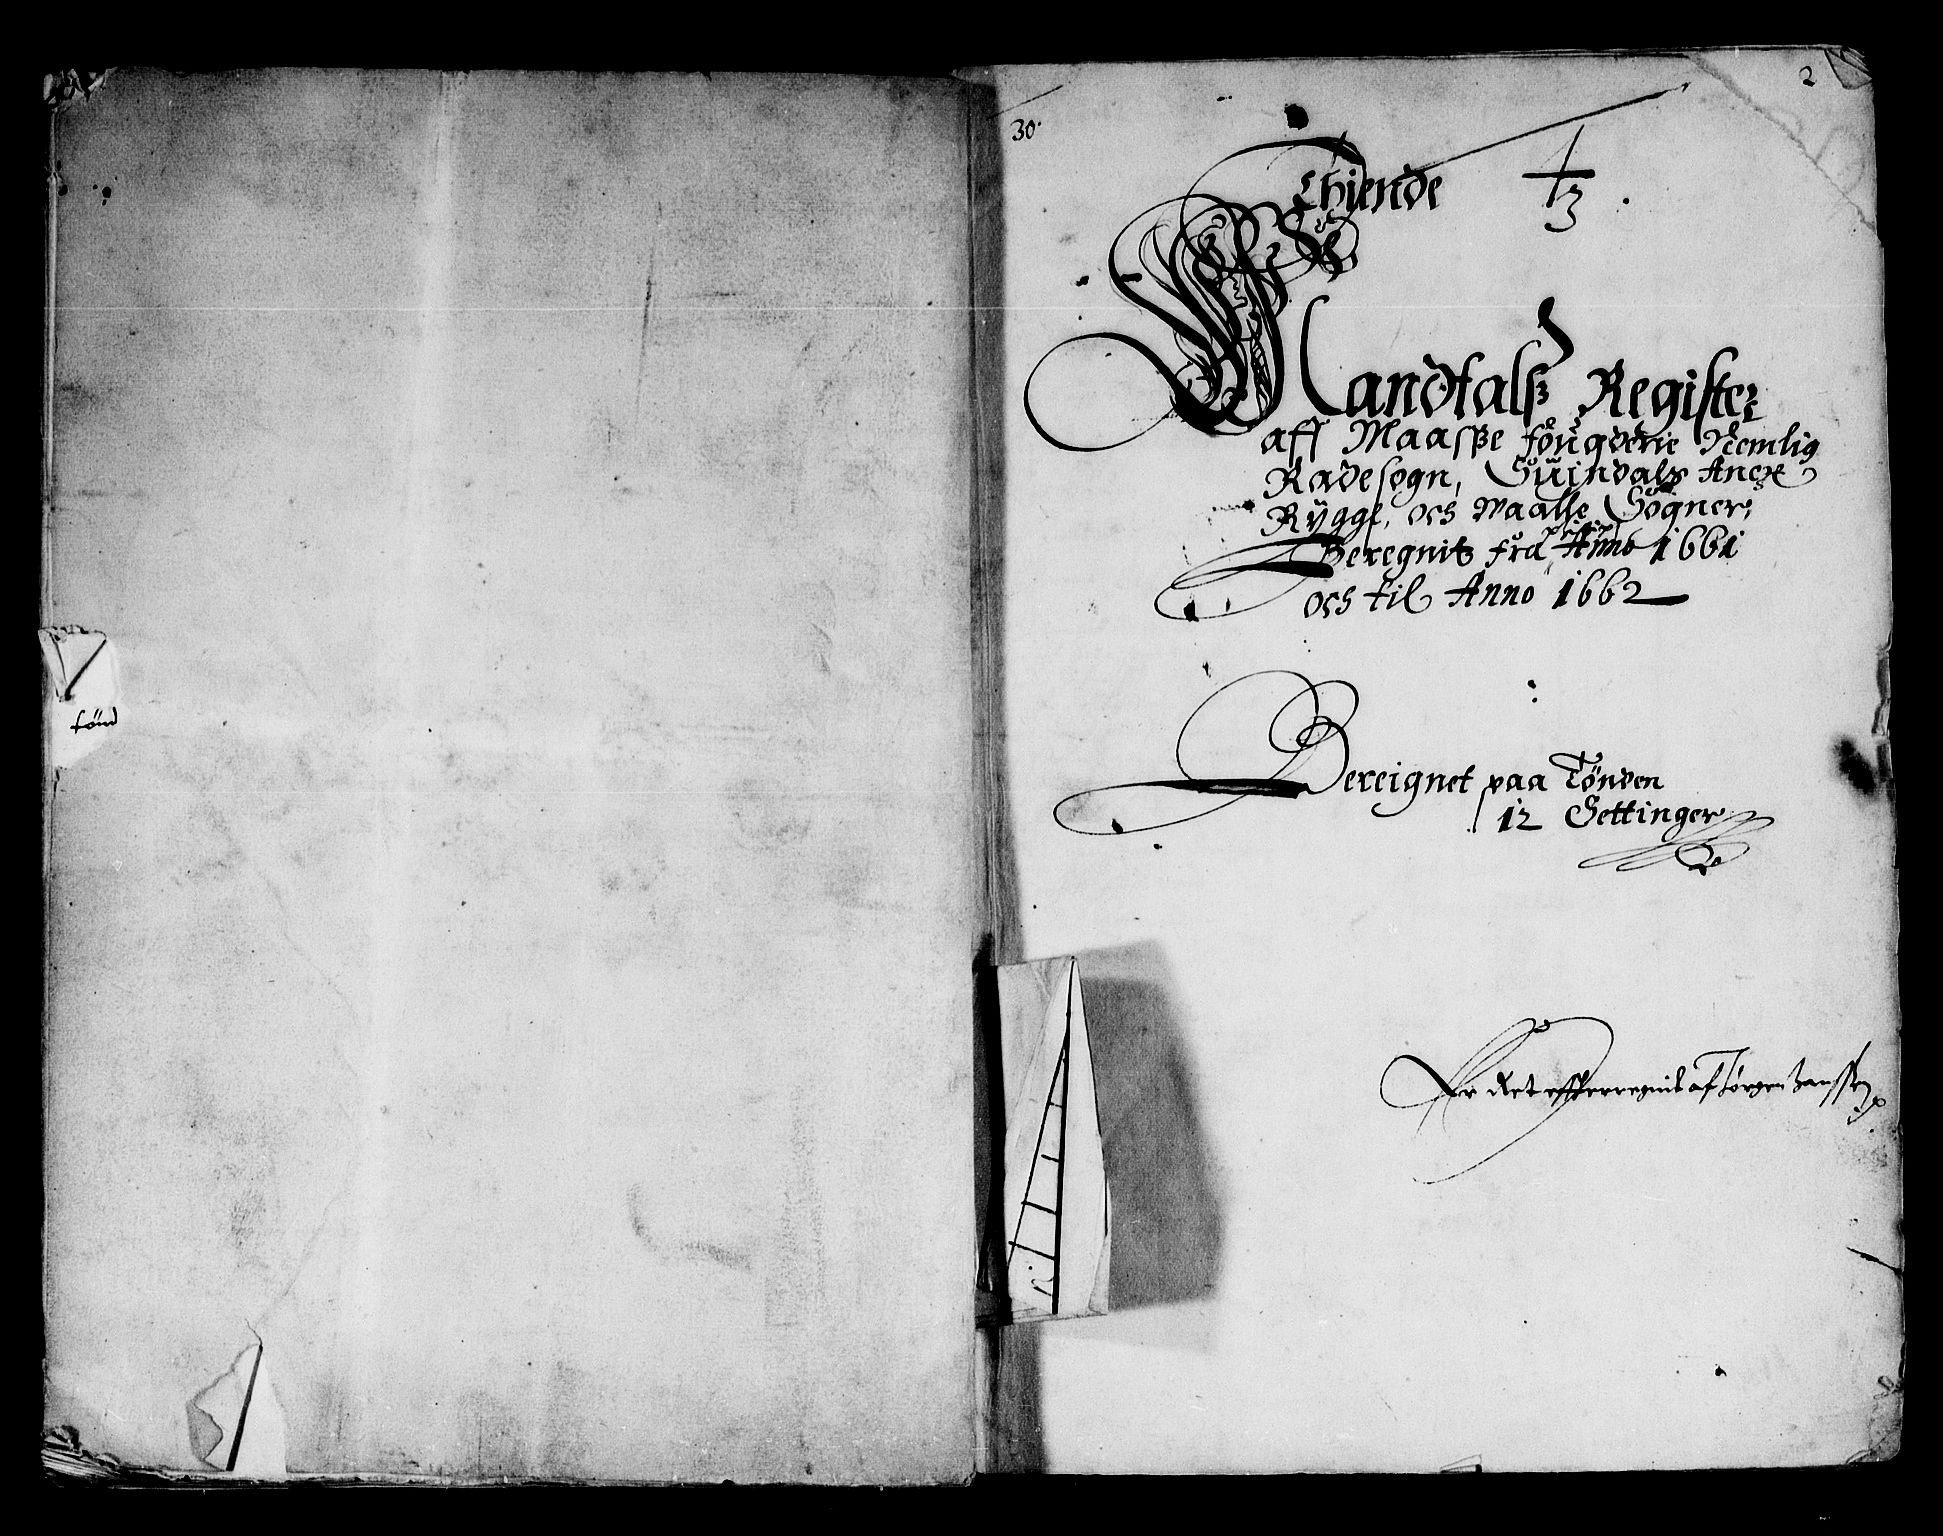 tønd
2
30.
Thiende
3
Mandtalß Register
aff Maasße fougderie Nemlig
Radesogn, Suindals Anex
Rÿgge, och Waalße Sogner,
Beregnit fra primo Anno 1661
och til Anno 1662
Bereignet paa Tønden
12 Settinger
Er Ret effterregnit af Jørgen Hanssen